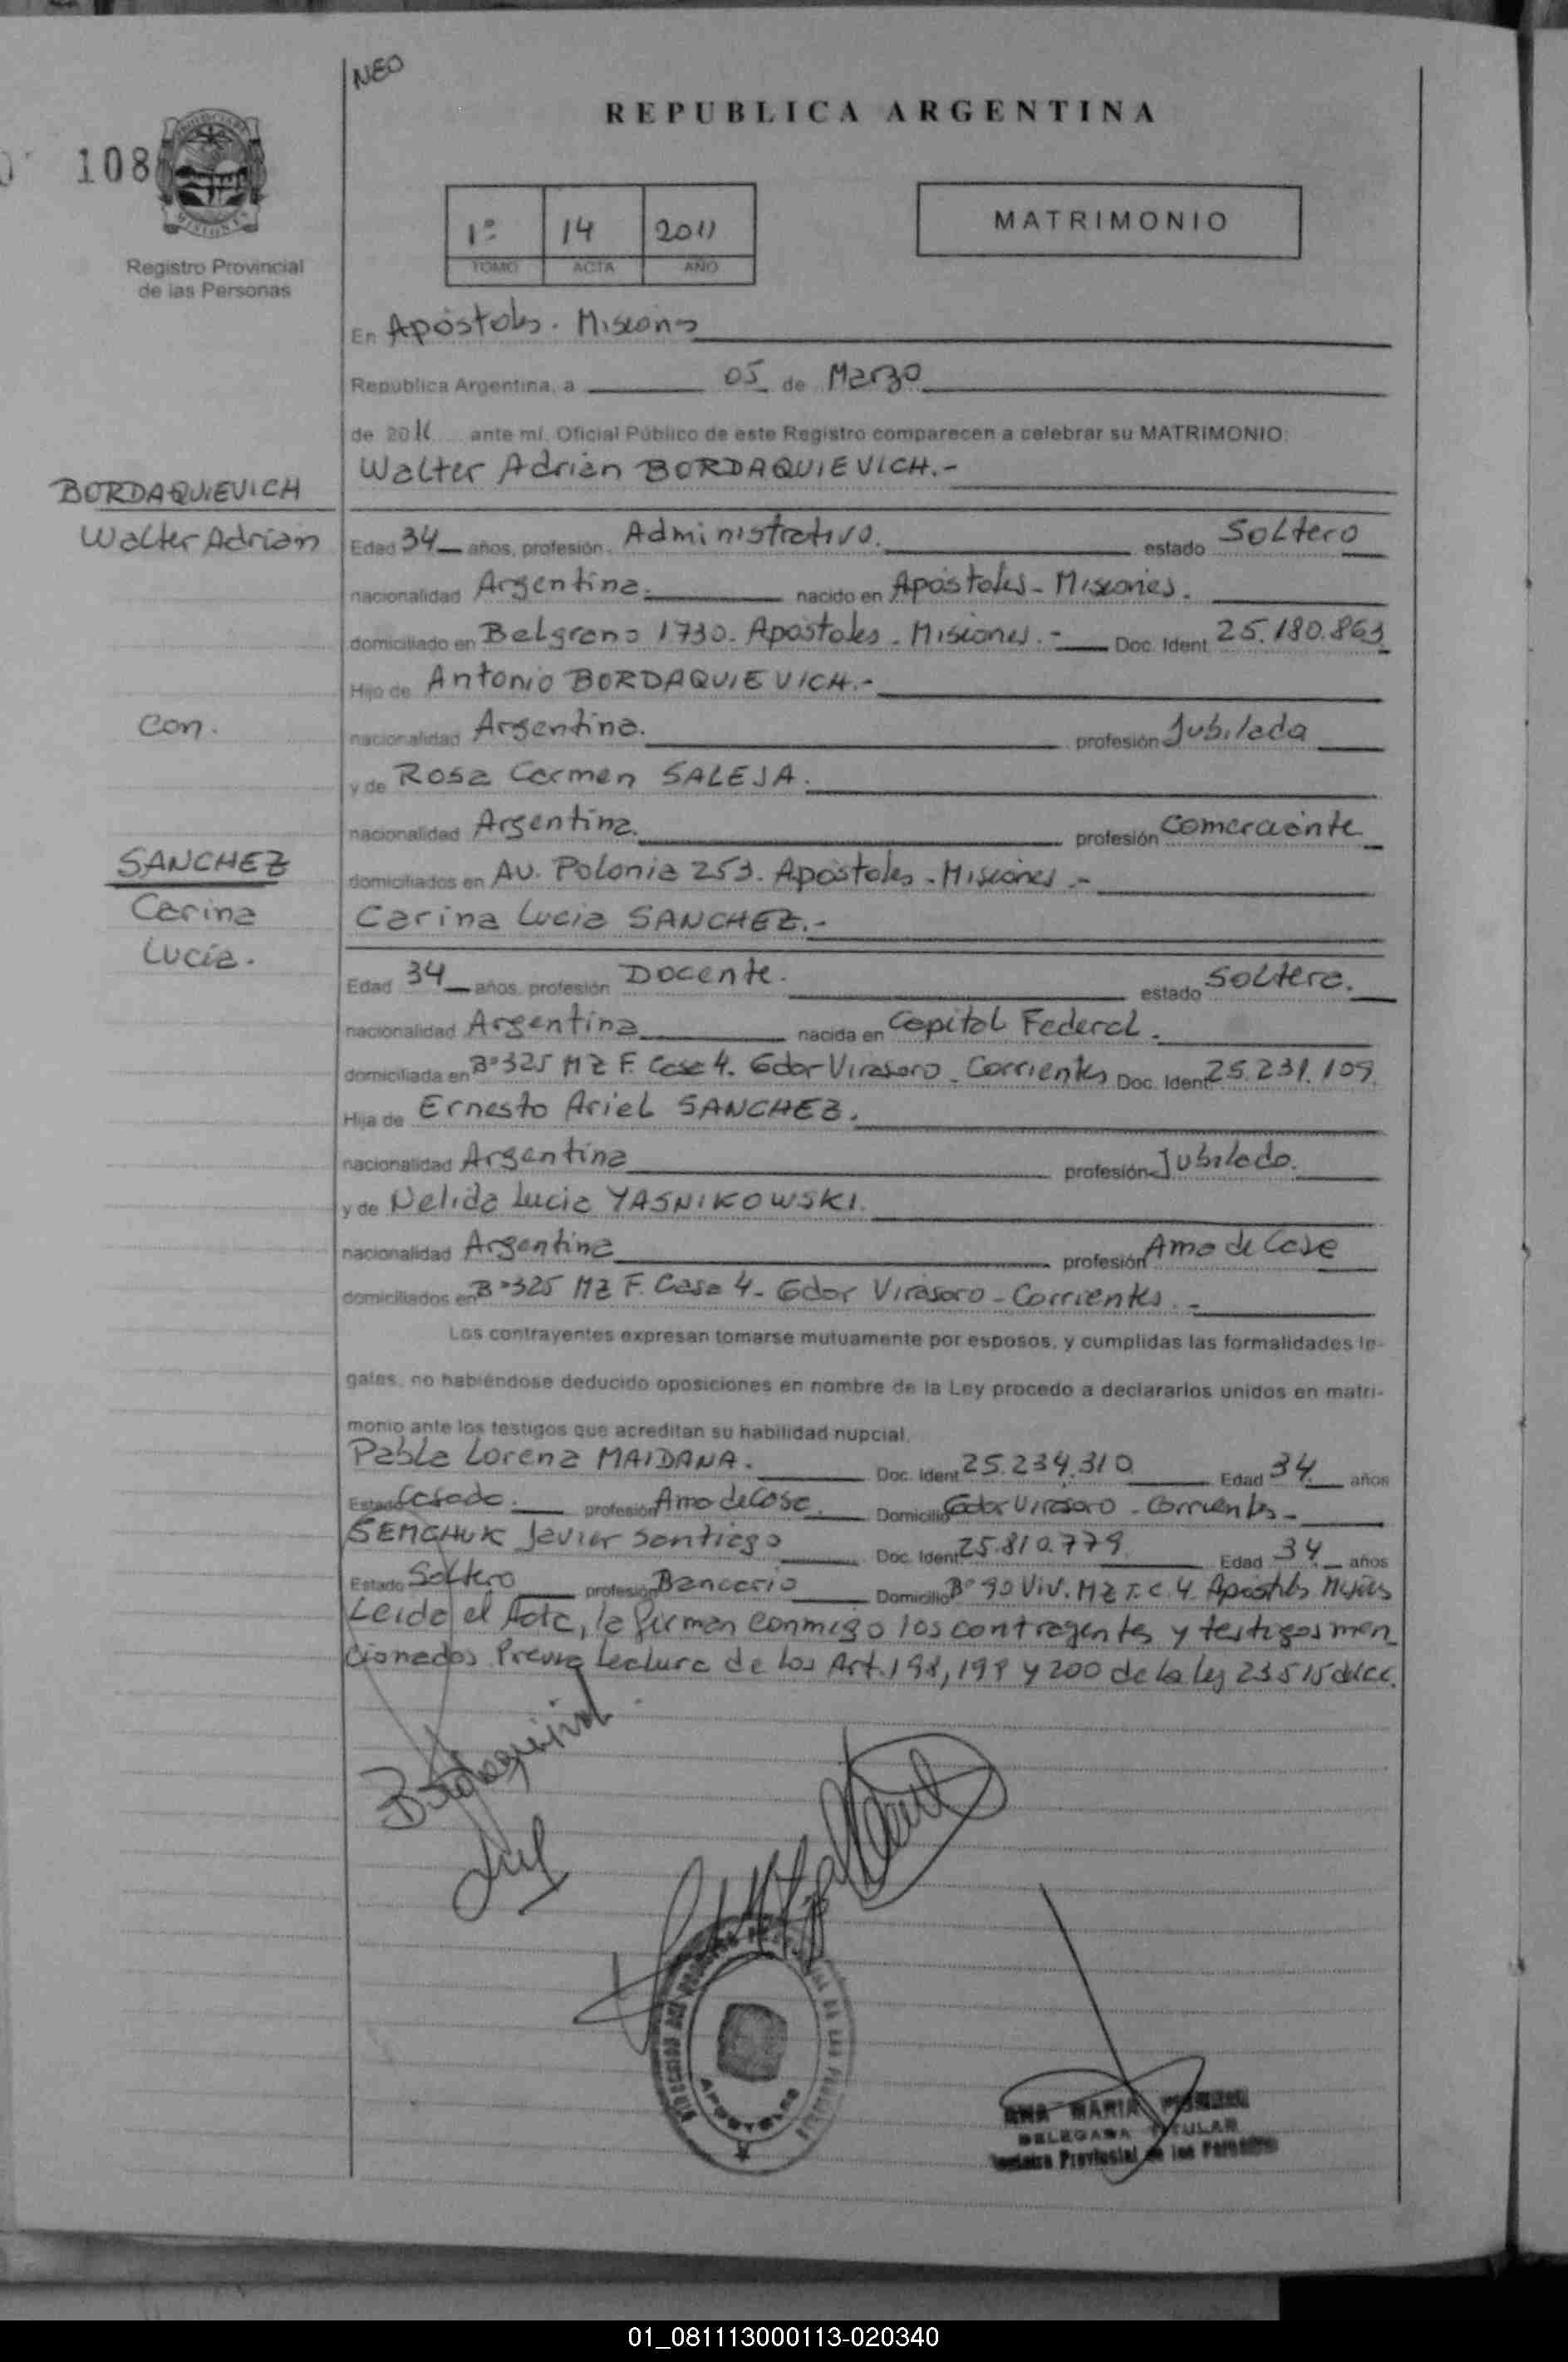 NEO
REPUBLICA ARGENTINA
108
1º 14 2011
TOMO ACTA AÑO
MATRIMONIO
Registro Provincial
de las Personas
En Apóstoles. Misiones
Republica Argentina, a 05 de Marzo
de 2011 ante mí, Oficial Público de este Registro comparecen a celebrar su MATRIMONIO:
Walter Adrián BORDAQUIEVICH.-
BORDAQUIEVICH
Walter Adrián
Edad 34 años, profesión Administrativo. estado Soltero
nacionalidad Argentina. nacido en Apóstoles - Misiones.
domiciliado en Belgrano 1730. Apóstoles - Misiones.- Doc. Ident. 25.180.863
Hijo de Antonio BORDAQUIEVICH.-
con.
nacionalidad Argentina. profesión Jubilada
y de Rosa Carmen SALEJA.
nacionalidad Argentina. profesión Comerciante
SANCHEZ
Carina
Lucía.
domiciliados en Av. Polonia 253. Apóstoles - Misiones.-
Carina Lucia SANCHEZ.-
Edad 34 años, profesión Docente. estado Soltera.
nacionalidad Argentina nacida en Capital Federal.
domiciliada en Bº 325 MZ F. Casa 4. Gdor Virasoro - Corrientes Doc. Ident. 25.231.109
Hija de Ernesto Ariel SANCHEZ.
nacionalidad Argentina profesión Jubilado.
y de Nelida Lucia YASNIKOWSKI.
nacionalidad Argentina profesión Ama de Casa
domiciliados en Bº 325 MZ F. Casa 4 - Gdor Virasoro - Corrientes.-
Los contrayentes expresan tomarse mutuamente por esposos, y cumplidas las formalidades le-
gales, no habiéndose deducido oposiciones en nombre de la Ley procedo a declararlos unidos en matri-
monio ante los testigos que acreditan su habilidad nupcial.
Pabla Lorena MAIDANA. Doc. Ident. 25.234.310 Edad 34 años
Estado Casada. profesión Ama de Casa. Domicilio Gdor Virasoro - Corrientes -
SEMCHUK Javier Santiago Doc. Ident. 25.810.779 Edad 34 años
Estado Soltero profesión Bancario Domicilio Bº 90 Viv. MZ T. C. 4. Apóstoles Misiones
Leida el Acta, la firman conmigo los contrayentes y testigos men
cionados Previa Lectura de los Art. 198, 199 y 200 de la ley 23515 del CC.
APOSTOLES
ANA MARIA
DELEGADA TITULAR
Registro Provincial de las Personas
01_081113000113-020340